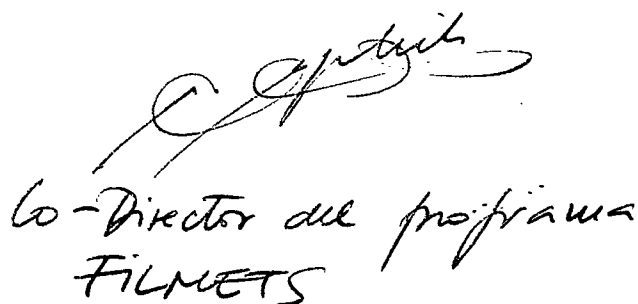 Co-Director del programa
FILMETS